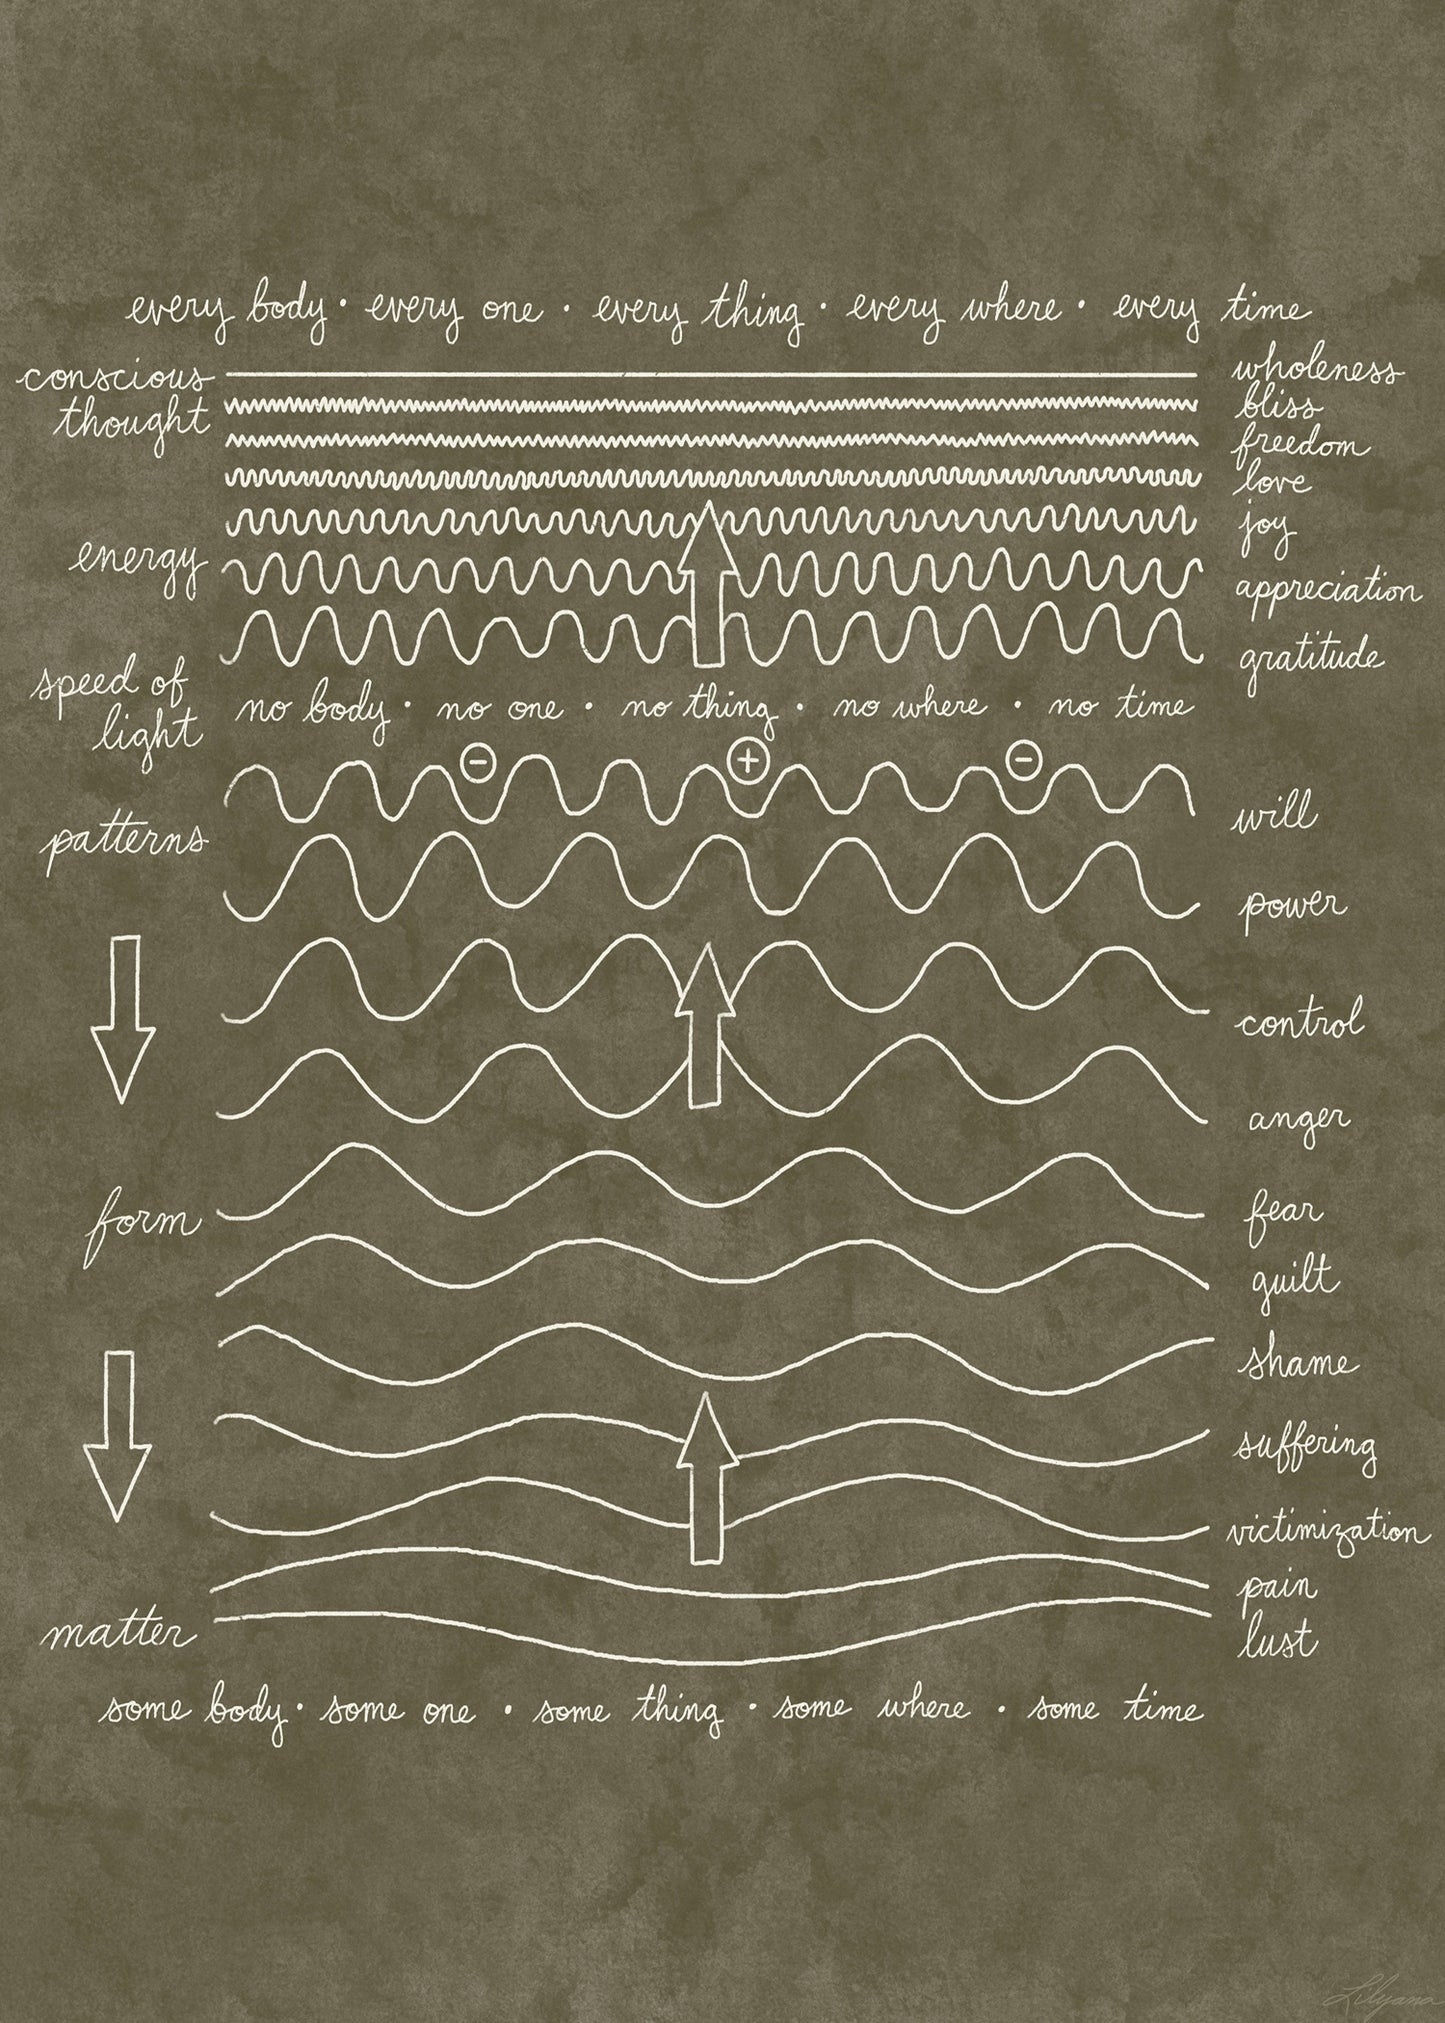 every body • every one • every thing • every where • every time
conscious thought
wholeness
bliss
freedom
love
joy
energy
appreciation
gratitude
speed of light
no body • no one • no thing • no where • no time
− + −
will
patterns
power
control
anger
form
fear
guilt
shame
suffering
victimization
pain
matter
lust
some body • some one • some thing • some where • some time
Lilyana